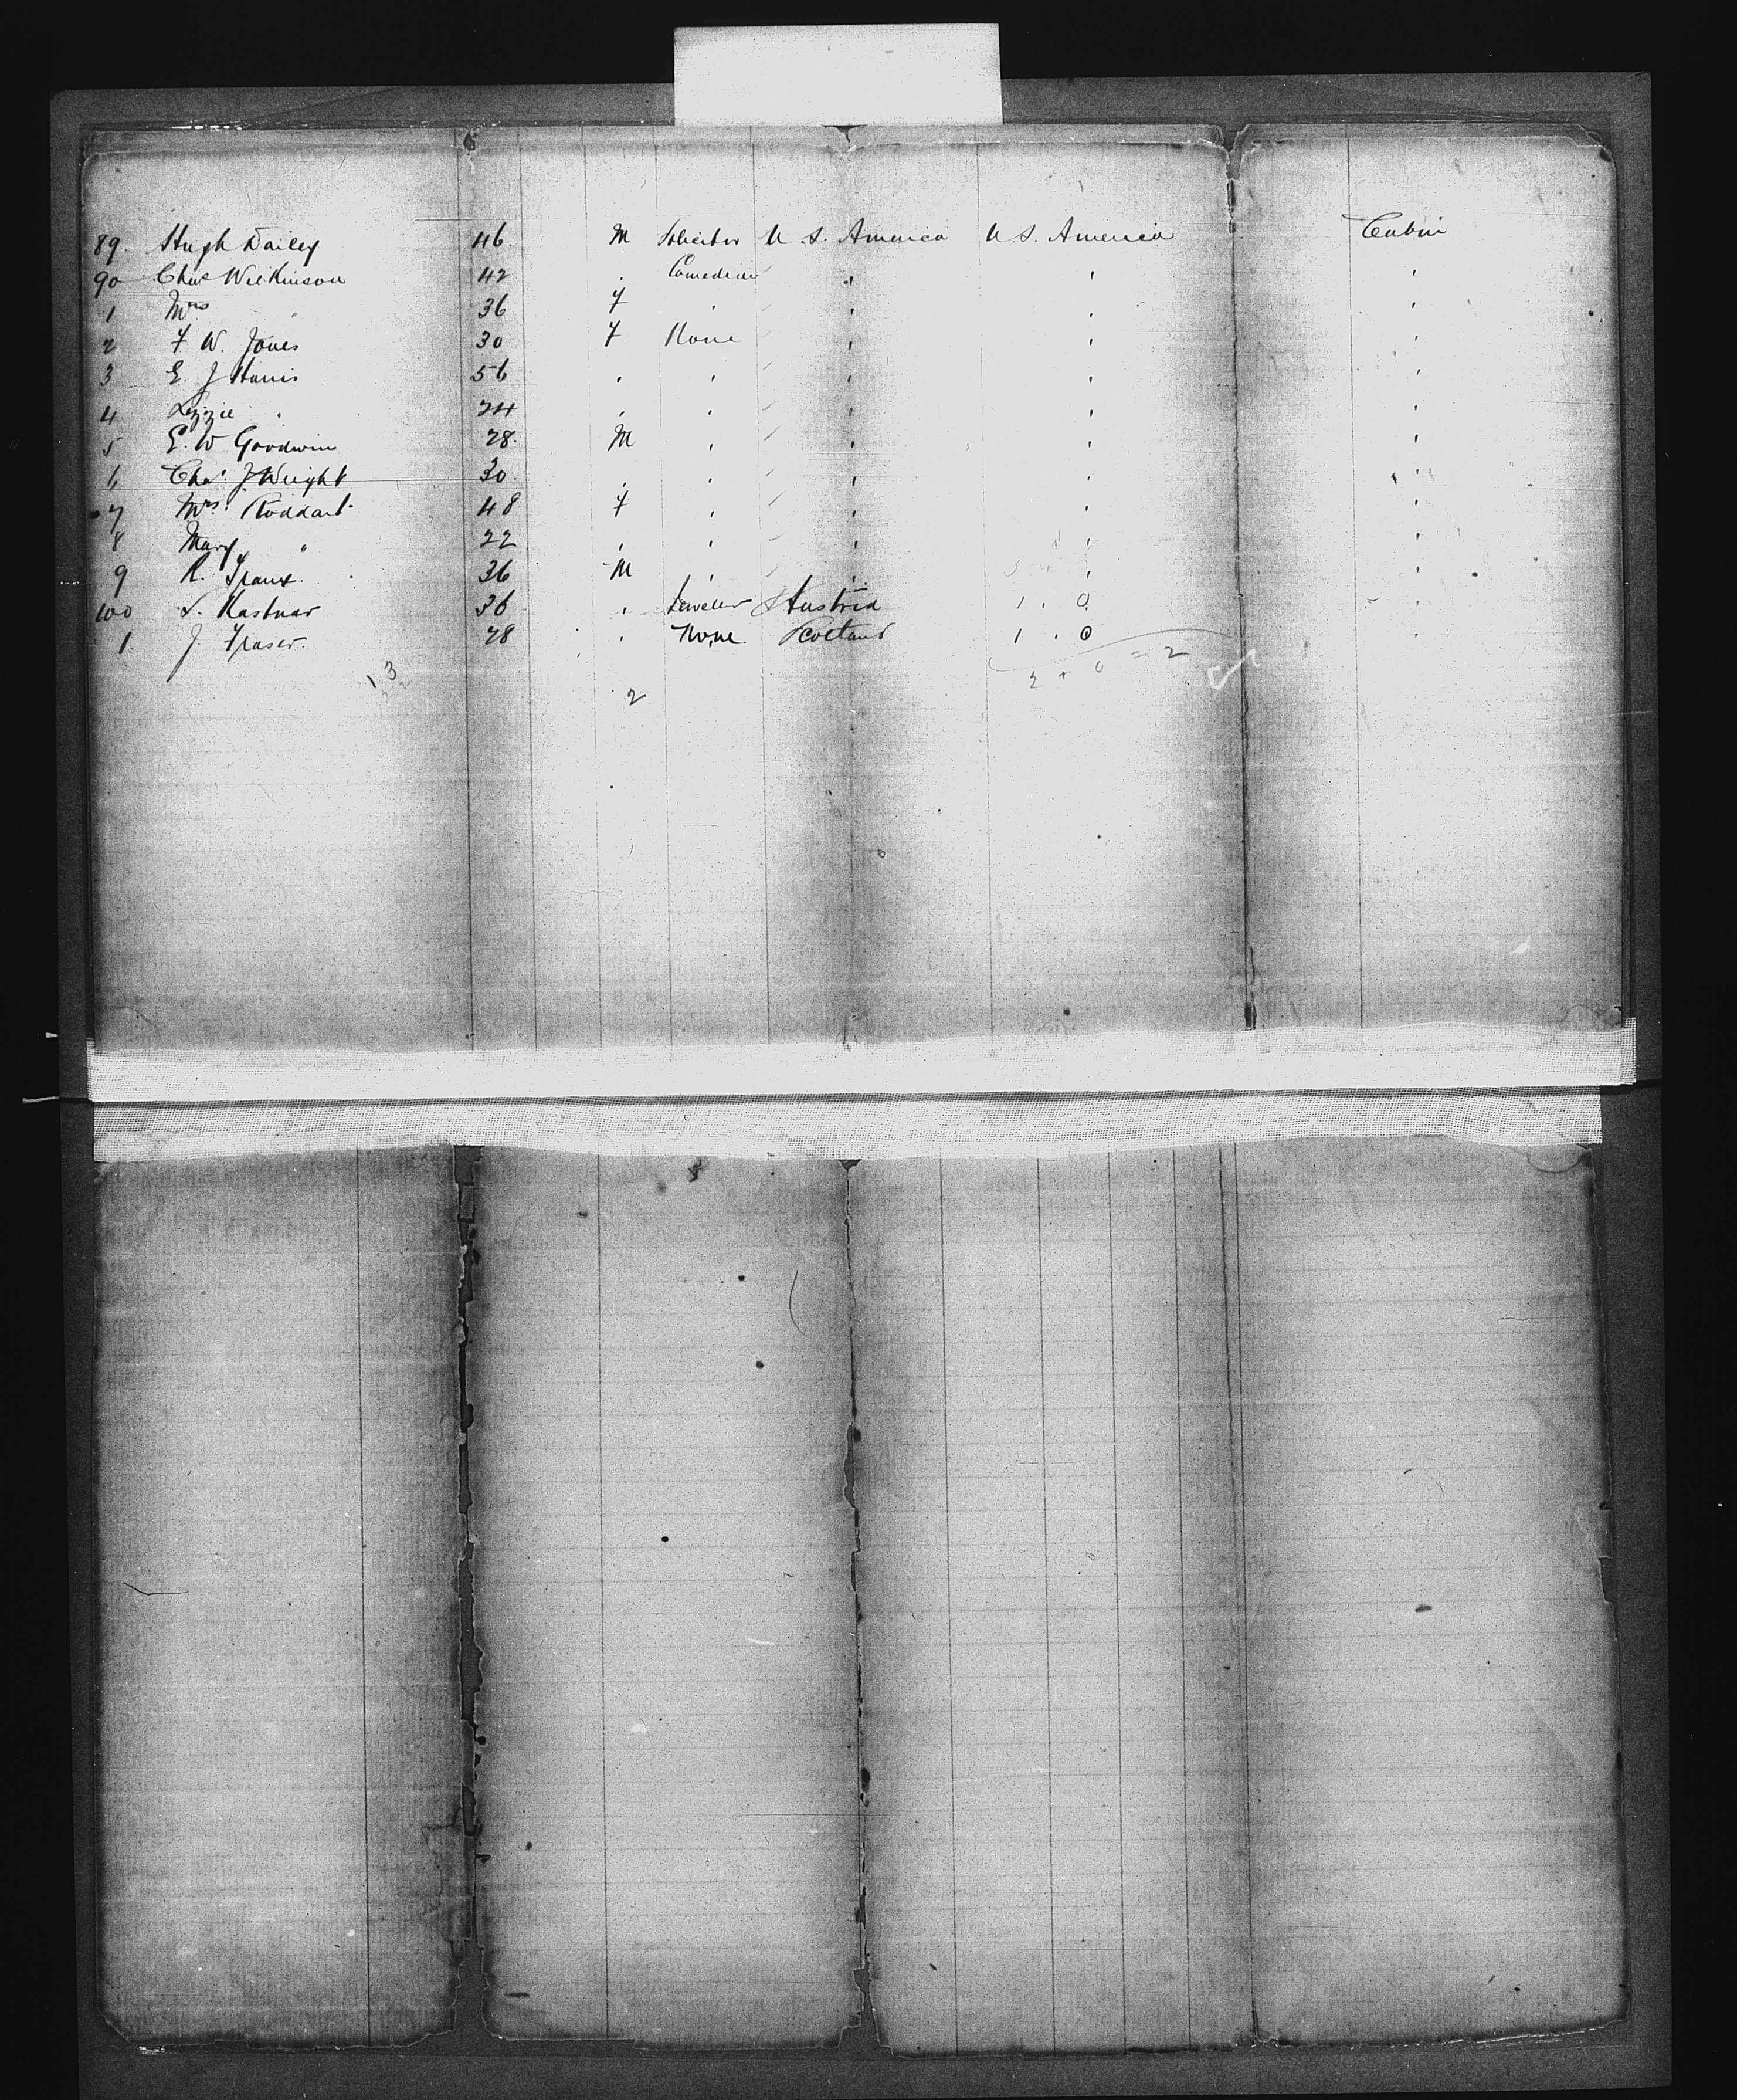 89. Hugh Dailey 46. M Solicitor U S. America U S. America Cabin
90 Chas Wilkinson 42 . Comedian " " "
1 Mrs " 36 F " " " "
2 F W. Jones 30 F None " " "
3 E. J Harris 56 " " " " "
4 Lizzie " 24 " " " " "
5 E. W Goodwin 28. M " " " "
6 Chas J Wright 30. " " " " "
7 Mrs Stoddart 48 F " " " "
8 Mary " 22 " " " " "
9 R. 36 M " " " "
100 S. Kastnar 36 " Jeweller Austria 1 . 0 "
1. J. Fraser. 28 " None Scotland 1 . 0 "
13 2 + 0 = 2
2